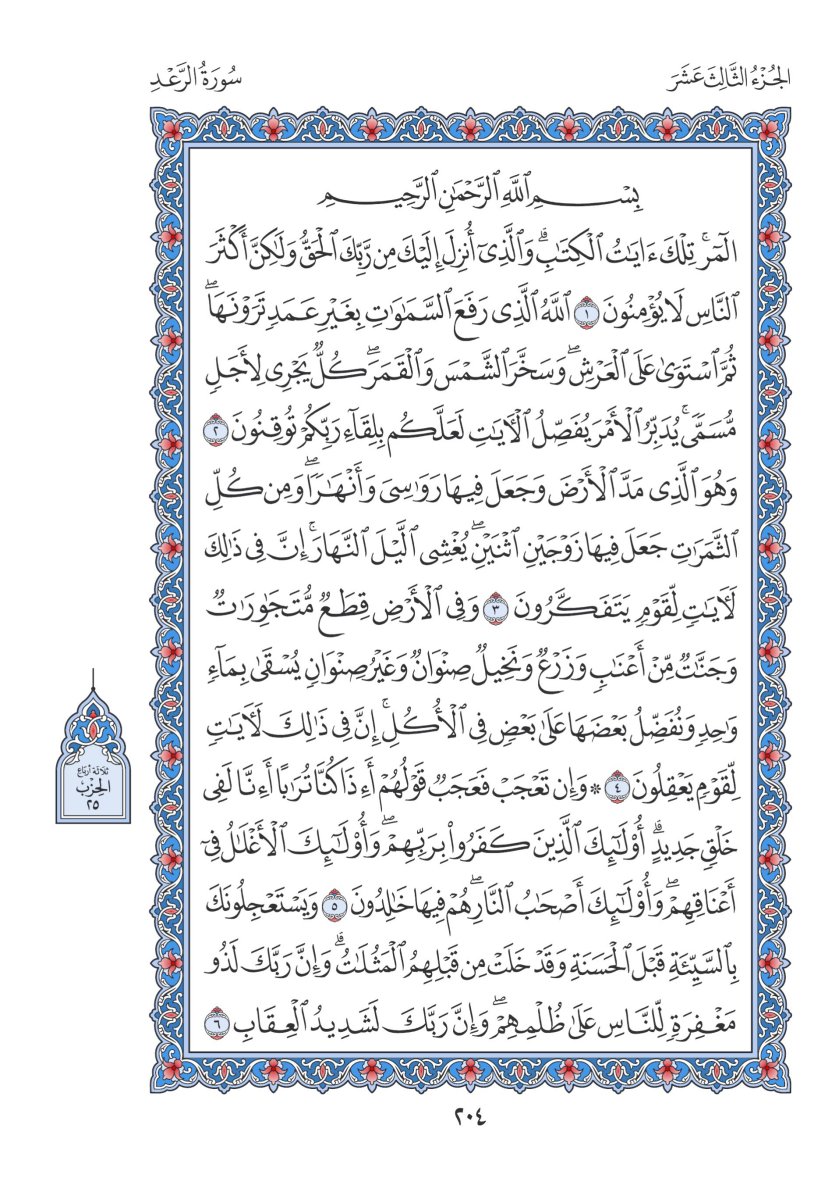 الجُزْءُ الثَّالِثَ عَشَرَ
سُورَةُ الرَّعْدِ
بِسْمِ ٱللَّهِ ٱلرَّحْمَٰنِ ٱلرَّحِيمِ
الٓمٓرۚ تِلْكَ ءَايَٰتُ ٱلْكِتَٰبِۗ وَٱلَّذِىٓ أُنزِلَ إِلَيْكَ مِن رَّبِّكَ ٱلْحَقُّ وَلَٰكِنَّ أَكْثَرَ
ٱلنَّاسِ لَا يُؤْمِنُونَ ١ ٱللَّهُ ٱلَّذِى رَفَعَ ٱلسَّمَٰوَٰتِ بِغَيْرِ عَمَدٍ تَرَوْنَهَاۖ
ثُمَّ ٱسْتَوَىٰ عَلَى ٱلْعَرْشِۖ وَسَخَّرَ ٱلشَّمْسَ وَٱلْقَمَرَۖ كُلٌّ يَجْرِى لِأَجَلٍ
مُّسَمًّىۚ يُدَبِّرُ ٱلْأَمْرَ يُفَصِّلُ ٱلْءَايَٰتِ لَعَلَّكُم بِلِقَآءِ رَبِّكُمْ تُوقِنُونَ ٢
وَهُوَ ٱلَّذِى مَدَّ ٱلْأَرْضَ وَجَعَلَ فِيهَا رَوَٰسِىَ وَأَنْهَٰرًاۖ وَمِن كُلِّ
ٱلثَّمَرَٰتِ جَعَلَ فِيهَا زَوْجَيْنِ ٱثْنَيْنِۖ يُغْشِى ٱلَّيْلَ ٱلنَّهَارَۚ إِنَّ فِى ذَٰلِكَ
لَءَايَٰتٍ لِّقَوْمٍ يَتَفَكَّرُونَ ٣ وَفِى ٱلْأَرْضِ قِطَعٌ مُّتَجَٰوِرَٰتٌ
وَجَنَّٰتٌ مِّنْ أَعْنَٰبٍ وَزَرْعٌ وَنَخِيلٌ صِنْوَانٌ وَغَيْرُ صِنْوَانٍ يُسْقَىٰ بِمَآءٍ
وَٰحِدٍ وَنُفَضِّلُ بَعْضَهَا عَلَىٰ بَعْضٍ فِى ٱلْأُكُلِۚ إِنَّ فِى ذَٰلِكَ لَءَايَٰتٍ
لِّقَوْمٍ يَعْقِلُونَ ٤ * وَإِن تَعْجَبْ فَعَجَبٌ قَوْلُهُمْ أَءِذَا كُنَّا تُرَٰبًا أَءِنَّا لَفِى
خَلْقٍ جَدِيدٍۗ أُو۟لَٰٓئِكَ ٱلَّذِينَ كَفَرُوا۟ بِرَبِّهِمْۖ وَأُو۟لَٰٓئِكَ ٱلْأَغْلَٰلُ فِىٓ
أَعْنَاقِهِمْۖ وَأُو۟لَٰٓئِكَ أَصْحَٰبُ ٱلنَّارِۖ هُمْ فِيهَا خَٰلِدُونَ ٥ وَيَسْتَعْجِلُونَكَ
بِٱلسَّيِّئَةِ قَبْلَ ٱلْحَسَنَةِ وَقَدْ خَلَتْ مِن قَبْلِهِمُ ٱلْمَثُلَٰتُۗ وَإِنَّ رَبَّكَ لَذُو
مَغْفِرَةٍ لِّلنَّاسِ عَلَىٰ ظُلْمِهِمْۖ وَإِنَّ رَبَّكَ لَشَدِيدُ ٱلْعِقَابِ ٦
ثلاثة أرباع
الحزب
٢٥
٢٠٤